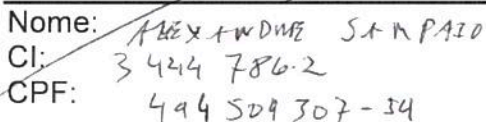 Nome: ALEXANDRE SAMPAIO
CI: 3444 786-2
CPF: 494 509 307-34